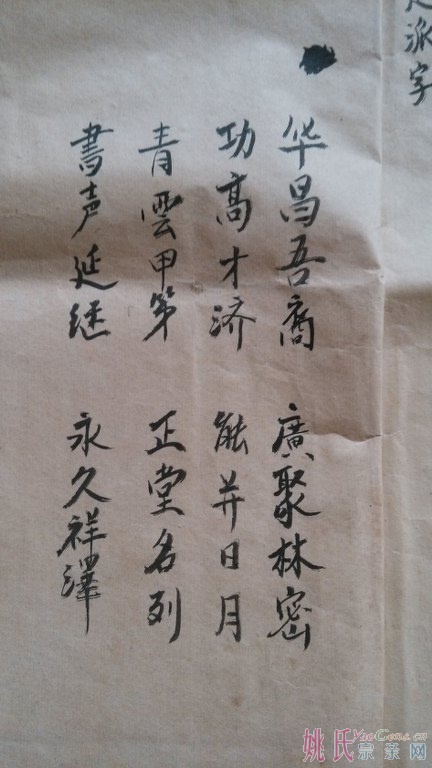 派字
华昌吾裔 廣聚林密
功高才济 能并日月
青雲甲第 正堂名列
書声延继 永久祥澤
姚氏宗亲网
YaoGens.cn